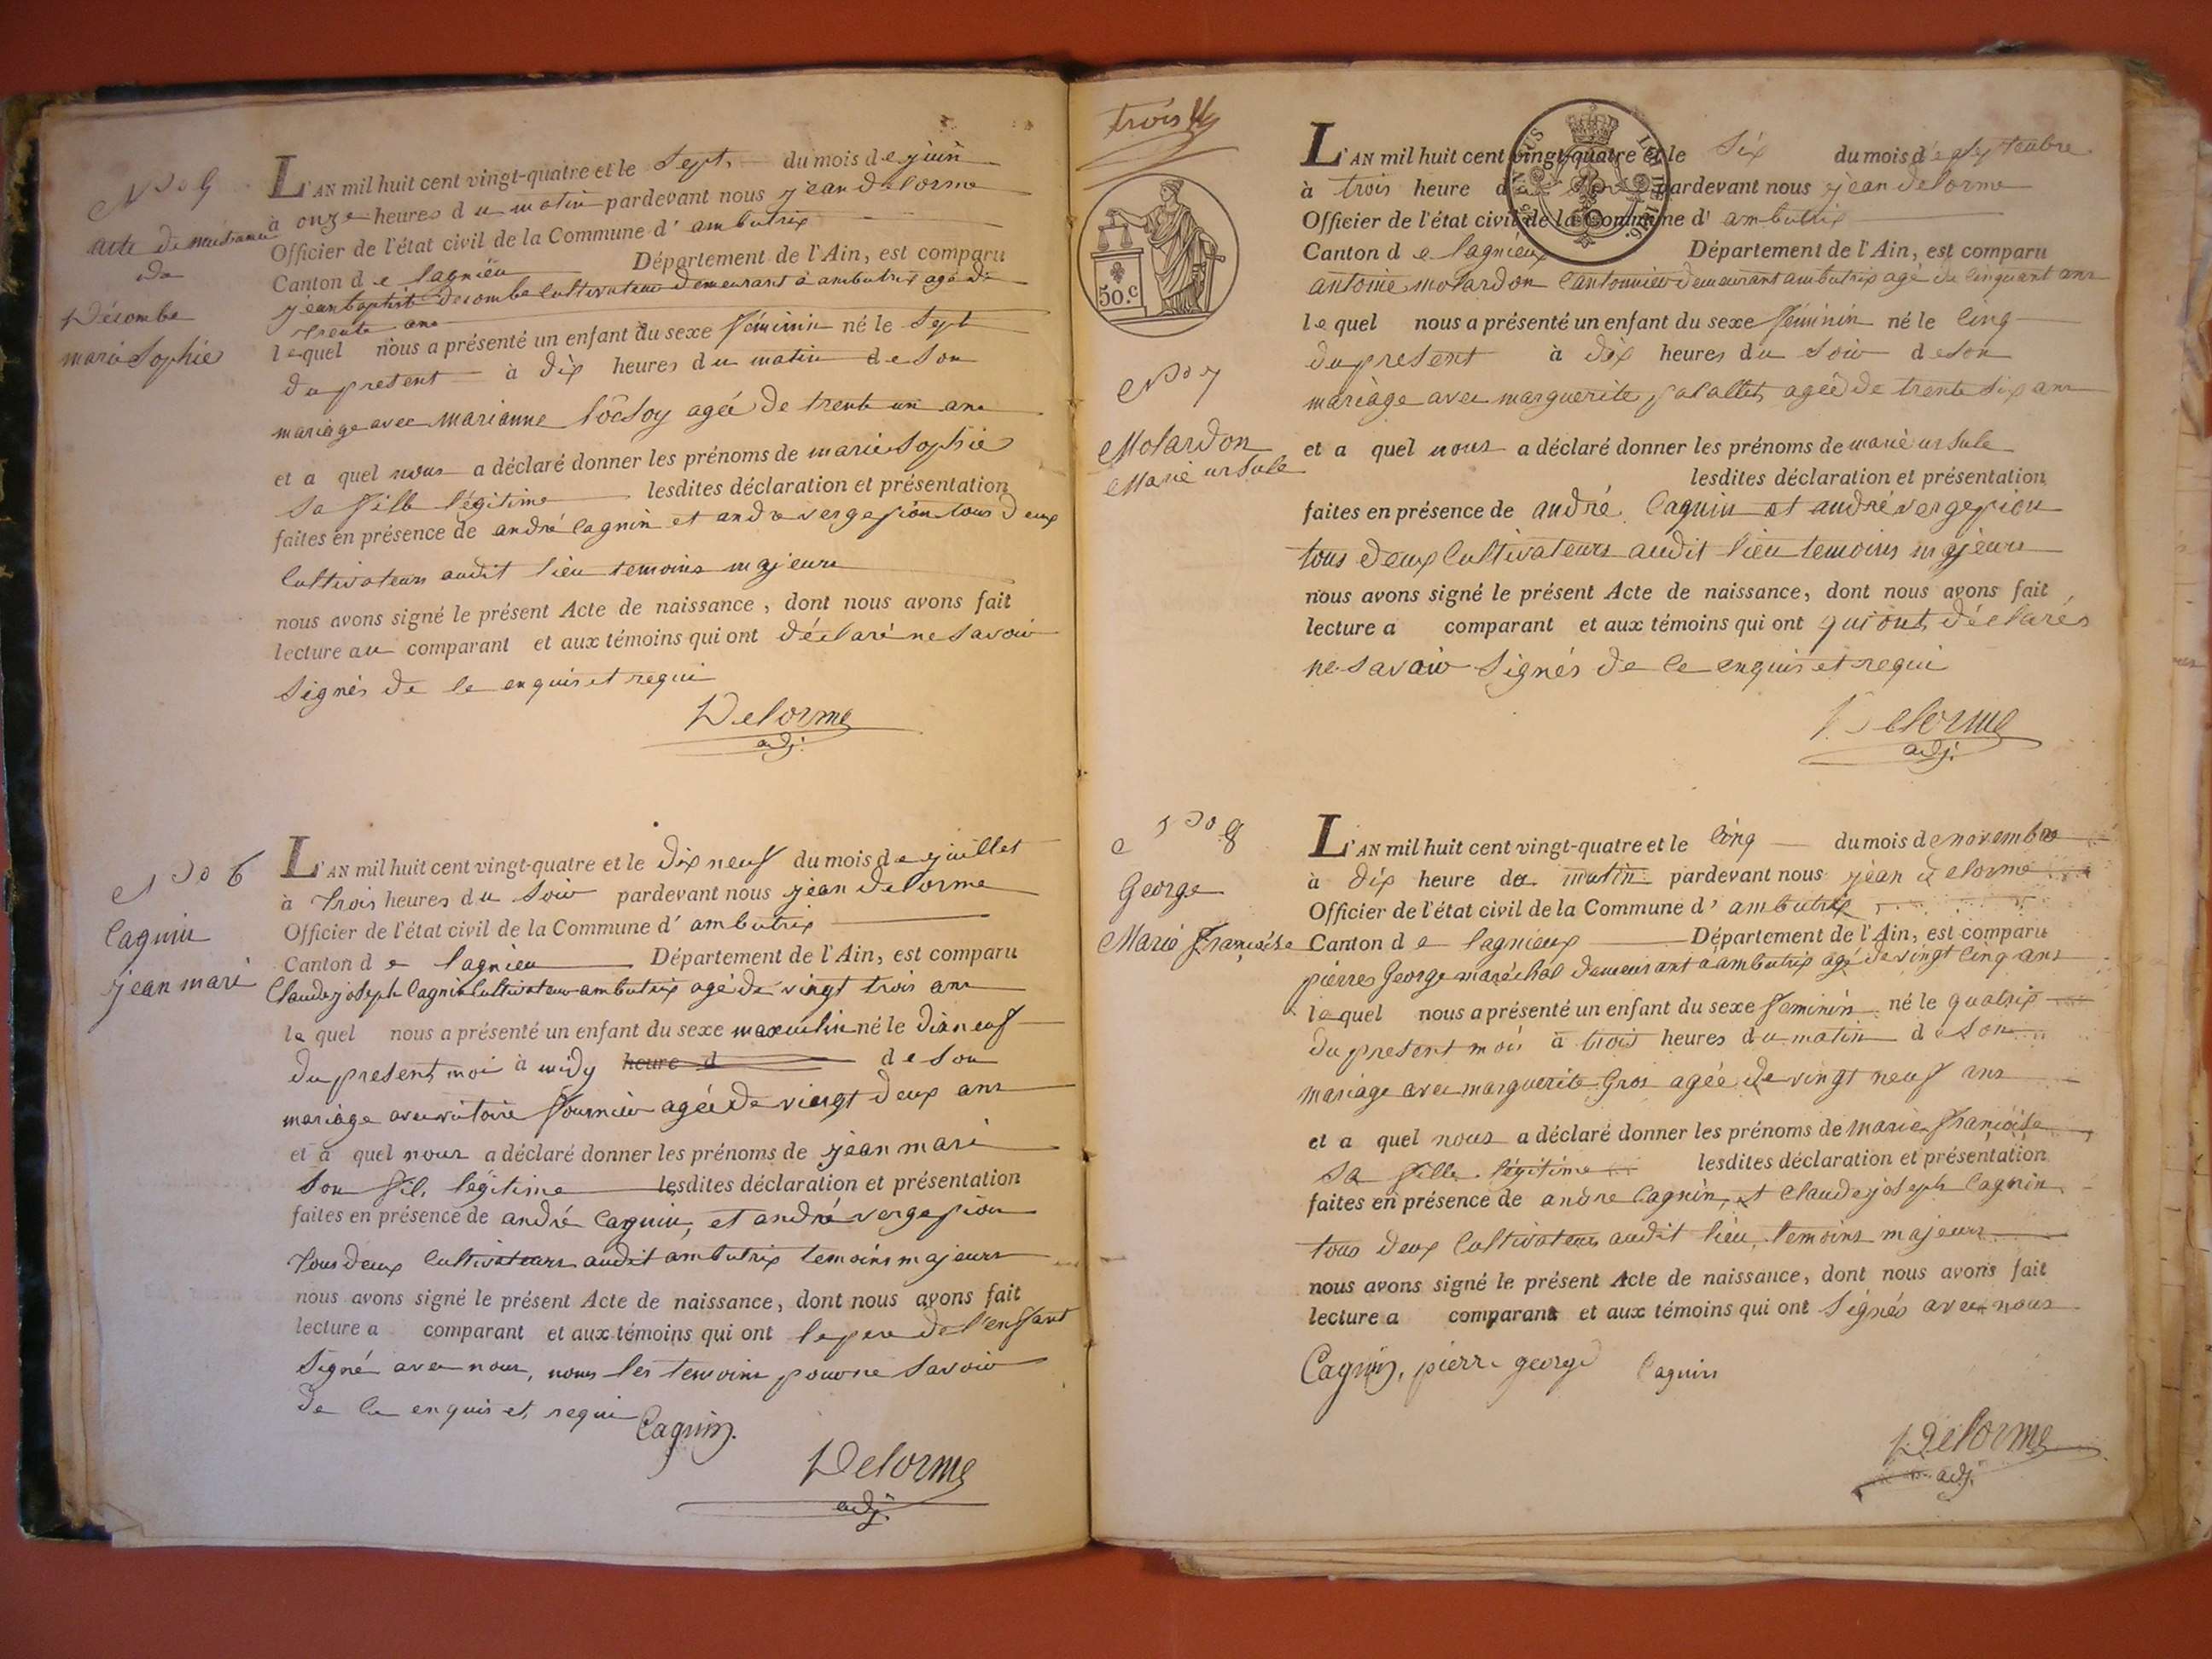 N.º 5
acte de naissance
de
Décombe
marie Sophie
L'AN mil huit cent vingt-quatre et le Sept du mois de juin
à onze heures du matin pardevant nous jean delorme
Officier de l'état civil de la Commune d' ambutrix
Canton de lagnieu Département de l'Ain, est comparu
jean baptiste decombe Cultivateur demeurant à ambutrix agé de
trente ans
lequel nous a présenté un enfant du sexe féminin né le Sept
du present à dix heures du matin de Son
mariage avec marianne agée de trente un ans
et a quel nous a déclaré donner les prénoms de marie Sophie
Sa fille légitime lesdites déclaration et présentation
faites en présence de andré Cagnin et andre vergepion tous deux
Cultivateurs audit lieu temoins majeurs
nous avons signé le présent Acte de naissance, dont nous avons fait
lecture au comparant et aux témoins qui ont déclaré ne Savoir
Signés de Ce enquis et requi
Delorme
adj.
N.º 6
Cagnin
jean mari
L'AN mil huit cent vingt-quatre et le dix neuf du mois de juillet
à trois heures du Soir pardevant nous jean delorme
Officier de l'état civil de la Commune d' ambutrix
Canton de lagnieu Département de l'Ain, est comparu
Claude joseph Cagnin Cultivateur ambutrix agé de vingt trois ans
lequel nous a présenté un enfant du sexe masculin né le dix neuf
du present moi à midy heure d de Son
mariage avec victoire fournier agée de vingt deux ans
et a quel nous a déclaré donner les prénoms de jean mari
Son fils légitime lesdites déclaration et présentation
faites en présence de andré Cagnin, et andré vergepion
tous deux Cultivateurs audit ambutrix temoins majeurs
nous avons signé le présent Acte de naissance, dont nous avons fait
lecture a comparant et aux témoins qui ont le pere de l'enfant
Signé avec nous, nous les temoins pour ne Savoir
de Ce enquis et requi
Cagnin.
Delorme
adj.
trois
50.c
N.º 7
Molardon
Marie ursule
L'AN mil huit cent vingt-quatre et le Six du mois de Septembre
à trois heure du Soir pardevant nous jean delorme
Officier de l'état civil de la Commune d' ambutrix
Canton de lagnieux Département de l'Ain, est comparu
antoine molardon Cantonnier demeurant ambutrix agé de Cinquant ans
lequel nous a présenté un enfant du sexe féminin né le Cinq
du present à dix heures du Soir de Son
mariage avec marguerite agée de trente Six ans
et a quel nous a déclaré donner les prénoms de marie ursule
lesdites déclaration et présentation
faites en présence de andré Cagnin et andré vergepion
tous deux Cultivateurs audit lieu temoins majeurs
nous avons signé le présent Acte de naissance, dont nous avons fait
lecture a comparant et aux témoins qui ont qui ont déclarés
ne Savoir Signés de Ce enquis et requi
Delorme
adj.
N.º 8
George
Marie Françoise
L'AN mil huit cent vingt-quatre et le Cinq du mois de novembre
à dix heure du matin pardevant nous jean delorme
Officier de l'état civil de la Commune d' ambutrix
Canton de lagnieux Département de l'Ain, est comparu
pierres George maréchal demeurant à ambutrix agé de vingt Cinq ans
lequel nous a présenté un enfant du sexe feminin né le quatrix
du present moi à trois heures du matin de Son
mariage avec marguerite Gros agée de vingt neuf ans
et a quel nous a déclaré donner les prénoms de marie françoise
Sa fille légitime lesdites déclaration et présentation
faites en présence de andre Cagnin, et Claude joseph Cagnin
tous deux Cultivateurs audit lieu, temoins majeurs
nous avons signé le présent Acte de naissance, dont nous avons fait
lecture a comparant et aux témoins qui ont Signés avec nous
Cagnin, pierre george Cagnin
Delorme
adj.